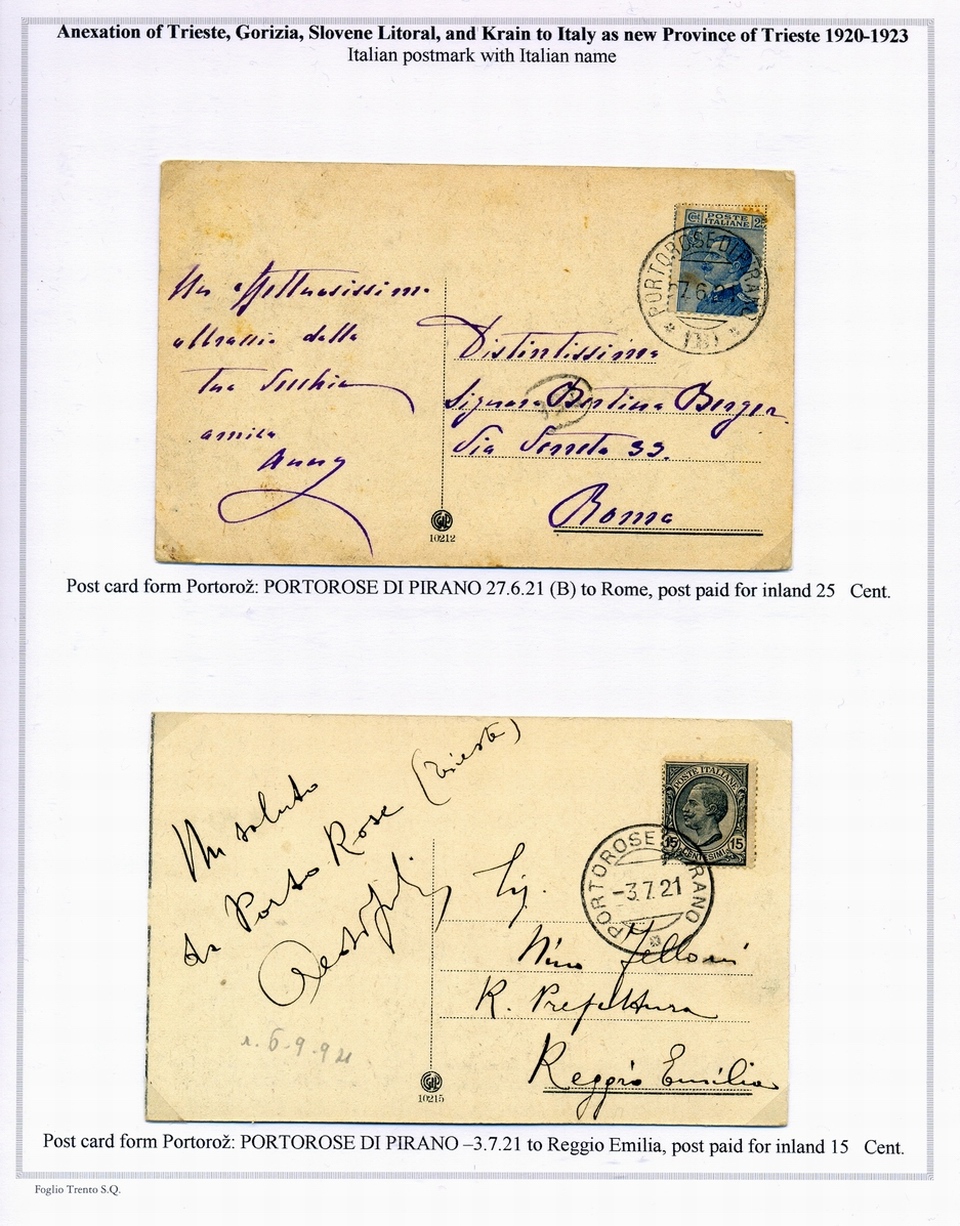 Anexation of Trieste, Gorizia, Slovene Litoral, and Krain to Italy as new Province of Trieste 1920-1923
Italian postmark with Italian name
POSTE
ITALIANE
PORTOROSE DI PIRANO
7.6.21
(B)
Un affettuosissimo
abbraccio dalla
tua vecchia
amica
Anny
Distintissima
Signora Bertina Berger
Via 33.
Roma
10212
Post card form Portorož: PORTOROSE DI PIRANO 27.6.21 (B) to Rome, post paid for inland 25 Cent.
POSTE ITALIANE
15 CENTESIMI 15
PORTOROSE DI PIRANO
-3.7.21
Un saluto
da Porto Rose (Trieste)
Sig.
Nino
R. Prefettura
Reggio Emilia
10215
Post card form Portorož: PORTOROSE DI PIRANO –3.7.21 to Reggio Emilia, post paid for inland 15 Cent.
Foglio Trento S.Q.